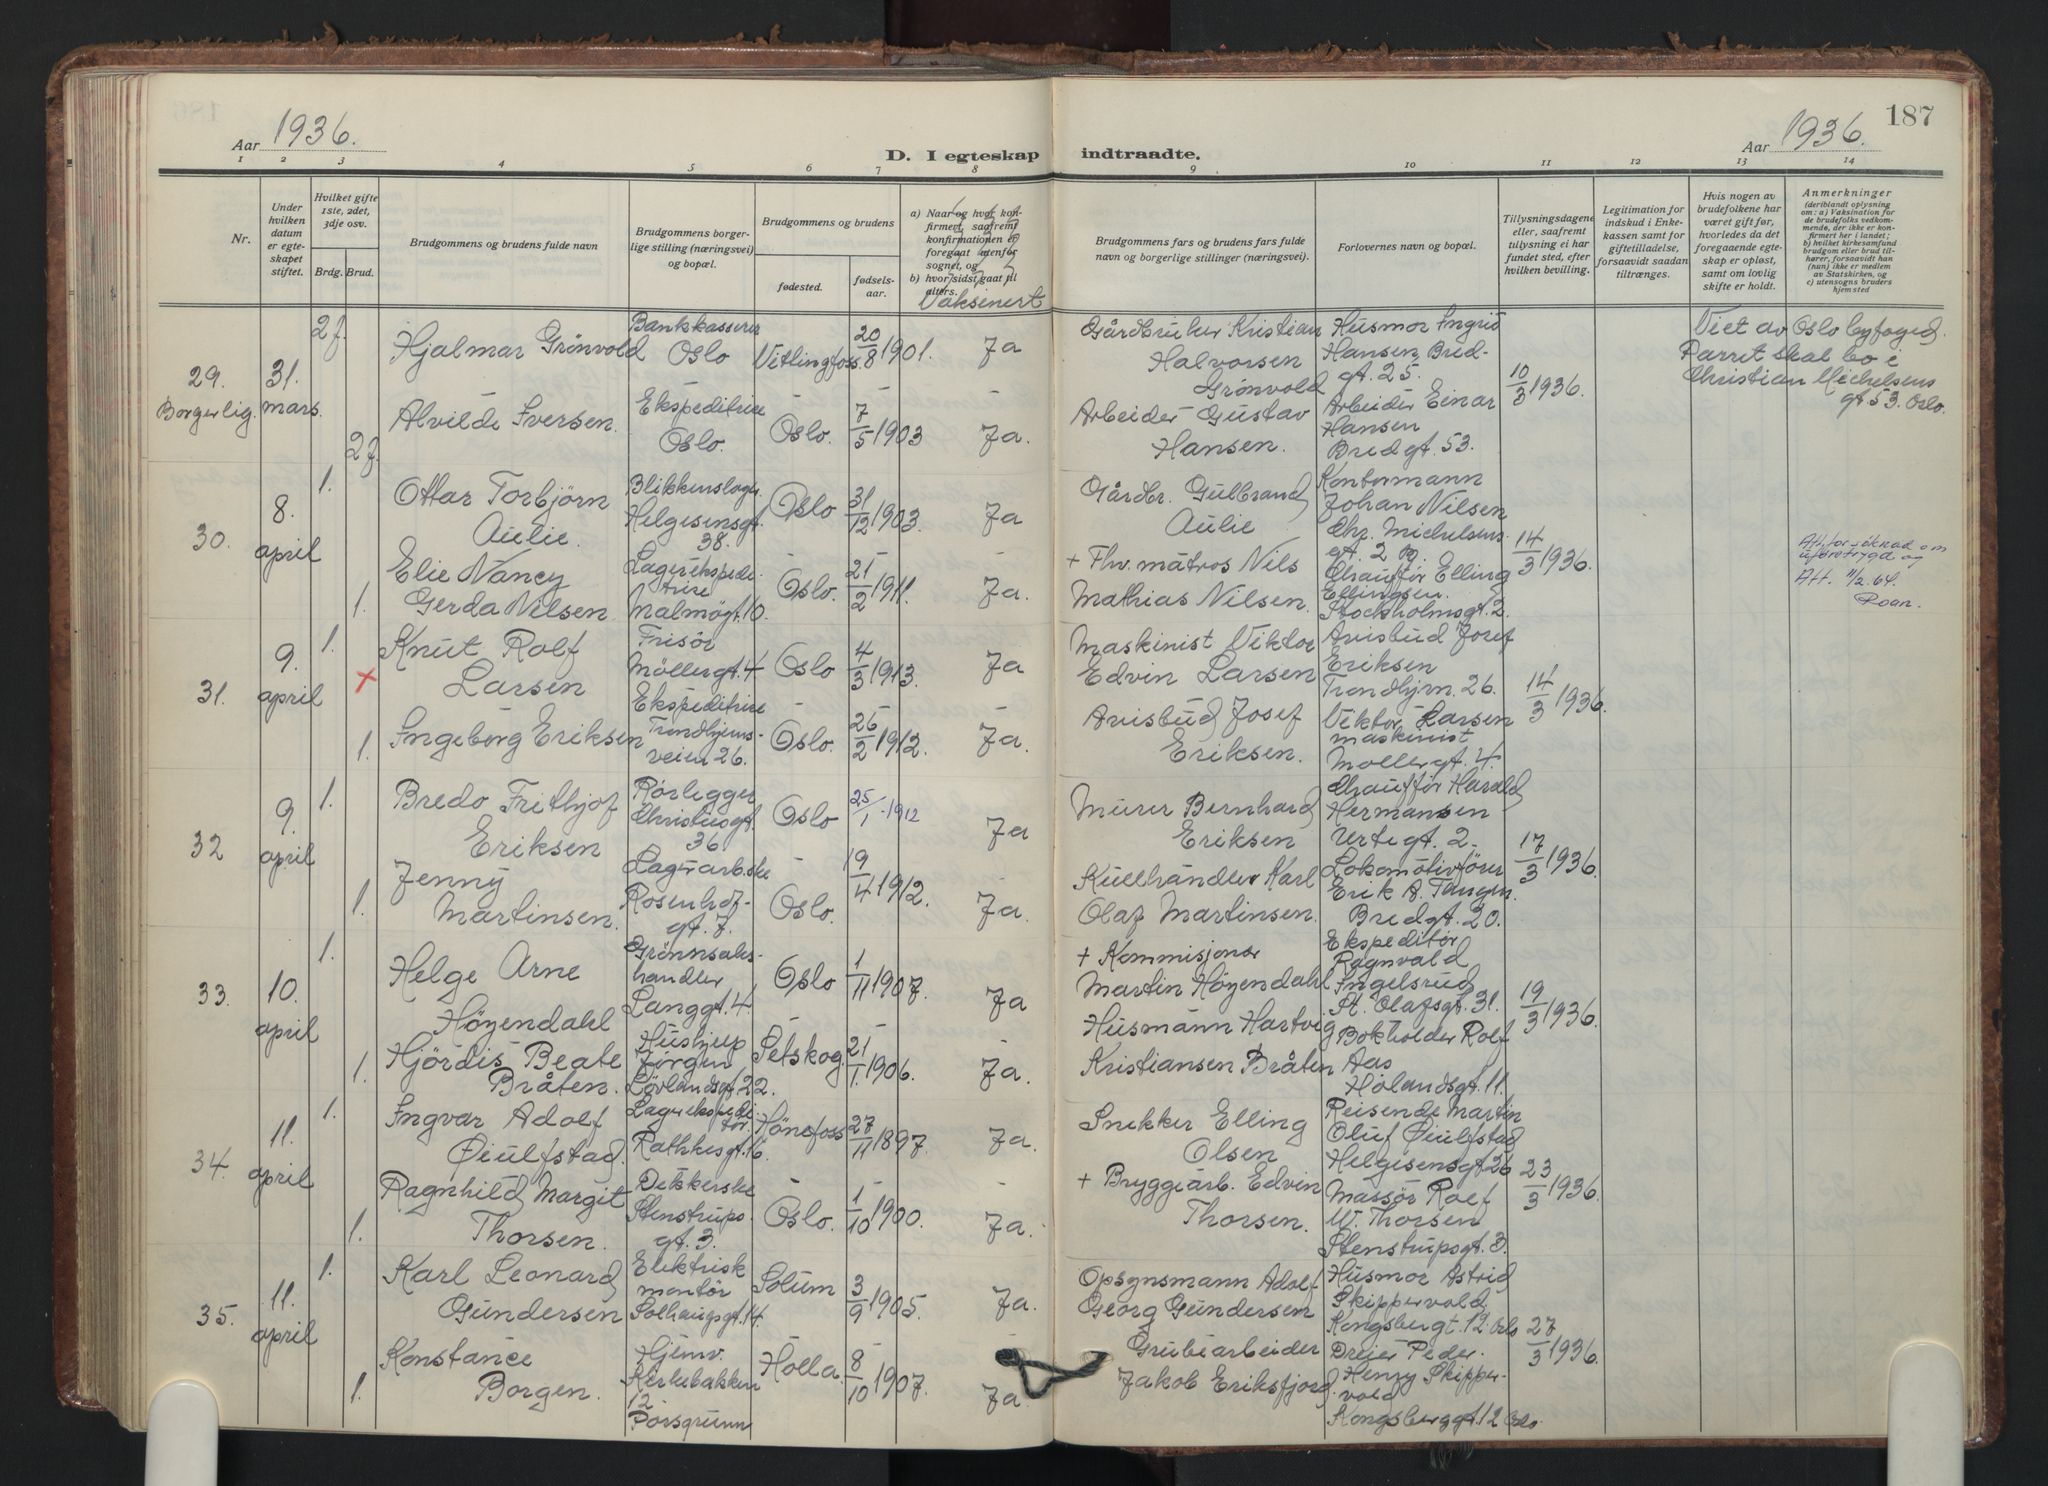 187
Aar 1936.
D. I egteskap indtraadte.
Aar 1936.
1 2 3 4 5 6 7 8 9 10 11 12 13 14
Nr.
Under hvilken datum er egteskapet stiftet.
Hvilket gifte 1ste, 2det, 3dje osv.
Brdg. Brud.
Brudgommens og brudens fulde navn
Brudgommens borgerlige stilling (næringsvei) og bopæl.
Brudgommens og brudens
fødested.
fødselsaar.
a) Naar og hvor konfirmert, saafremt konfirmationen er foregaat utenfor sognet, og
b) hvor sidst gaat til alters.
Vaksinert
Brudgommens fars og brudens fars fulde navn og borgerlige stillinger (næringsvei).
Forlovernes navn og bopæl.
Tillysningsdagene eller, saafremt tullysning ei har fundet sted, efter hvilken bevilling.
Legitimation for indskud i Enkekassen samt for giftetilladelse, forsaavidt saadan tiltrænges.
Hvis nogen av brudefolkene har været gift før, hvorledes da det foregaaende egteskap er opløst, samt om lovlig skifte er holdt.
Anmerkninger
(deriblandt oplysning om: a) Vaksination for de brudefolks vedkommende, der ikke er konfirmert her i landet; b) hvilket kirkesamfund brudgom eller brud tilhører, forsaavidt han (hun) ikke er medlem av Statskirken, og c) utensogns bruders hjemsted
29. Borgerlig.
31. mars.
2 f
Hjalmar Grönvold
Bankkasserer
Oslo
Vitlingfoss
20/8 1901.
Ja
Gårdbruker Kristian
Halvorsen
Grønvold
Husmor Ingrid
Hansen Bred-
gt. 25.
10/3 1936.
Viet av Oslo byfoged.
Parret skal bo i
Christian Michelsens
gt 53. Oslo.
2 f.
Alvilde Iversen.
Ekspeditrise
Oslo.
Oslo.
7/5 1903
Ja.
Arbeider Gustav
Hansen.
Arbeider Einar
Hansen
Bredgt. 53.
30.
8. april
1.
Ottar Torbjörn
Aulie.
Blikkenslager
Helgesensgt.
38.
Oslo
31/12 1903.
Ja
Gårdbr. Gulbrand
Aulie
Kontormann
Johan Nilsen
Chr. Michelsens
gt. 2 B.
14/3 1936.
uføretrygd og
Att. 11/2.64.
1.
Elie Nancy
Gerda Nilsen
Lagerekspedi-
trise
Malmögt. 10.
Oslo.
21/2 1911.
Ja.
+ Fhv. matros Nils
Mathias Nilsen.
Chauffør Elling
Ellingsen.
Stockholmsgt. 2.
31.
9. april
1.
Knut Rolf
Larsen
Frisör
Möllergt. 4
Oslo
4/3 1913.
Ja
Maskinist Viktor
Edvin Larsen
Avisbud Josef
Eriksen
Trondhjm. 26.
14/3 1936.
1.
Ingeborg Eriksen
Ekspeditrise
Trondhjems-
veien 26.
Oslo.
26/2 1912.
Ja.
Avisbud Josef
Eriksen.
Viktor Larsen
maskinist
Møllergt. 4.
32
9. april
1.
Bredo Frithjof
Eriksen
Rørlegger
Christiesgt.
36
Oslo
25/1 1912
Ja
Murer Bernhard
Eriksen
Chauffør Harald
Hermansen
Urtegt. 2.
17/3 1936.
1.
Jenny
Martinsen.
Lagerarb.ske
Rosenhof-
gt. 7.
Oslo.
19/4 1912.
Ja.
Kullhandler Karl
Olaf Martinsen.
Lokomotivfører
Erik A. Tangen.
Bredgt. 20.
33.
10. april
1.
Helge Arne
Höyendahl
Grönnsaks-
handler
Langgt. 4.
Oslo
1/11 1907.
Ja
+ Kommisjonær
Martin Høyendahl
Ekspeditør
Ragnvald
Ingelsrud
St. Olafsgt. 31.
19/3 1936.
1.
Hjördis Beate
Bråten.
Hushjelp
Jørgen
Løvlandsgt. 22.
Setskog
21/1. 1906.
Ja.
Husmann Hartvig
Kristiansen Bråten
Bokholder Rolf
Aas
Hølandsgt. 11.
34.
11. april
1.
Ingvar Adolf
Øiulfstad.
Lagerekspedi-
tør.
Rathkesgt. 16.
Hönefoss
27/11 1897.
Ja.
Snekker Elling
Olsen
Reisende Martin
Oluf Øiulfstad
Helgesensgt 26
23/3 1936.
1.
Ragnhild Margit
Thorsen.
Dekkerske
Stenstrups-
gt. 3.
Oslo.
1/10 1900.
Ja.
+ Bryggeiarb. Edvin
Thorsen.
Massør Rolf
W. Thorsen
Stenstrupsgt. 3.
35.
11. april
1.
Karl Leonard
Gundersen
Elektrisk
montør
Solhaugsgt. 14.
Solum
3/9 1905.
Ja.
Opsynsmann Adolf
Georg Gundersen
Husmor Astrid
Skippervold.
Kongsbergt. 12. Oslo
27/3 1936.
1.
Konstance
Borgen.
Hjemv.
Kirkebakken
12
Porsgrunn
Holla.
8/10 1907.
Ja.
Grubearbeider
Jakob Eriksfjord.
Dreier Peder
Henry Skipper-
vold
Kongsberggt. 12 Oslo.